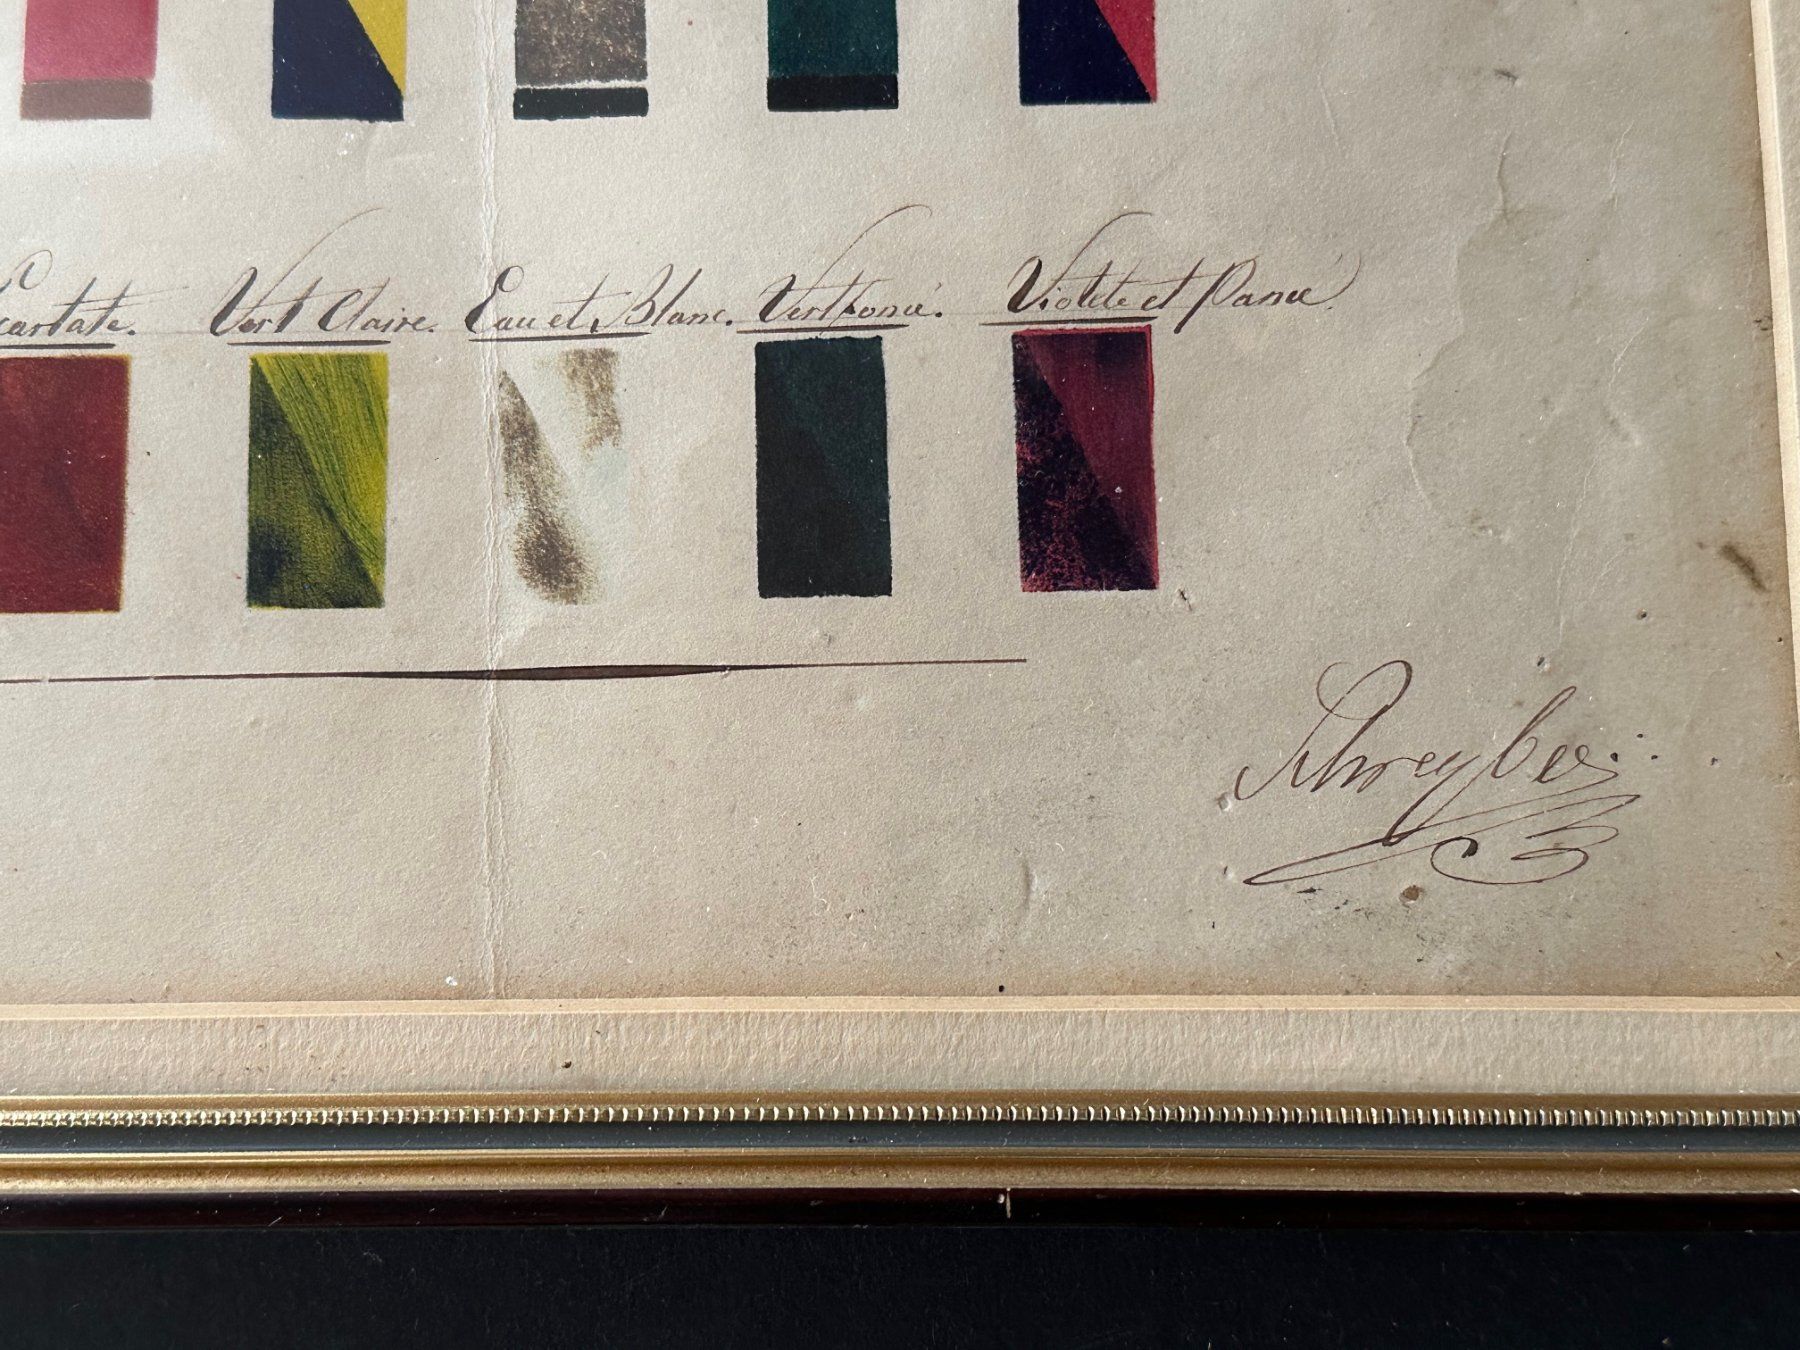 carlate. Vert Claire. Eau et Blanc. Vert foncé. Violete et Pancé
Schreyber